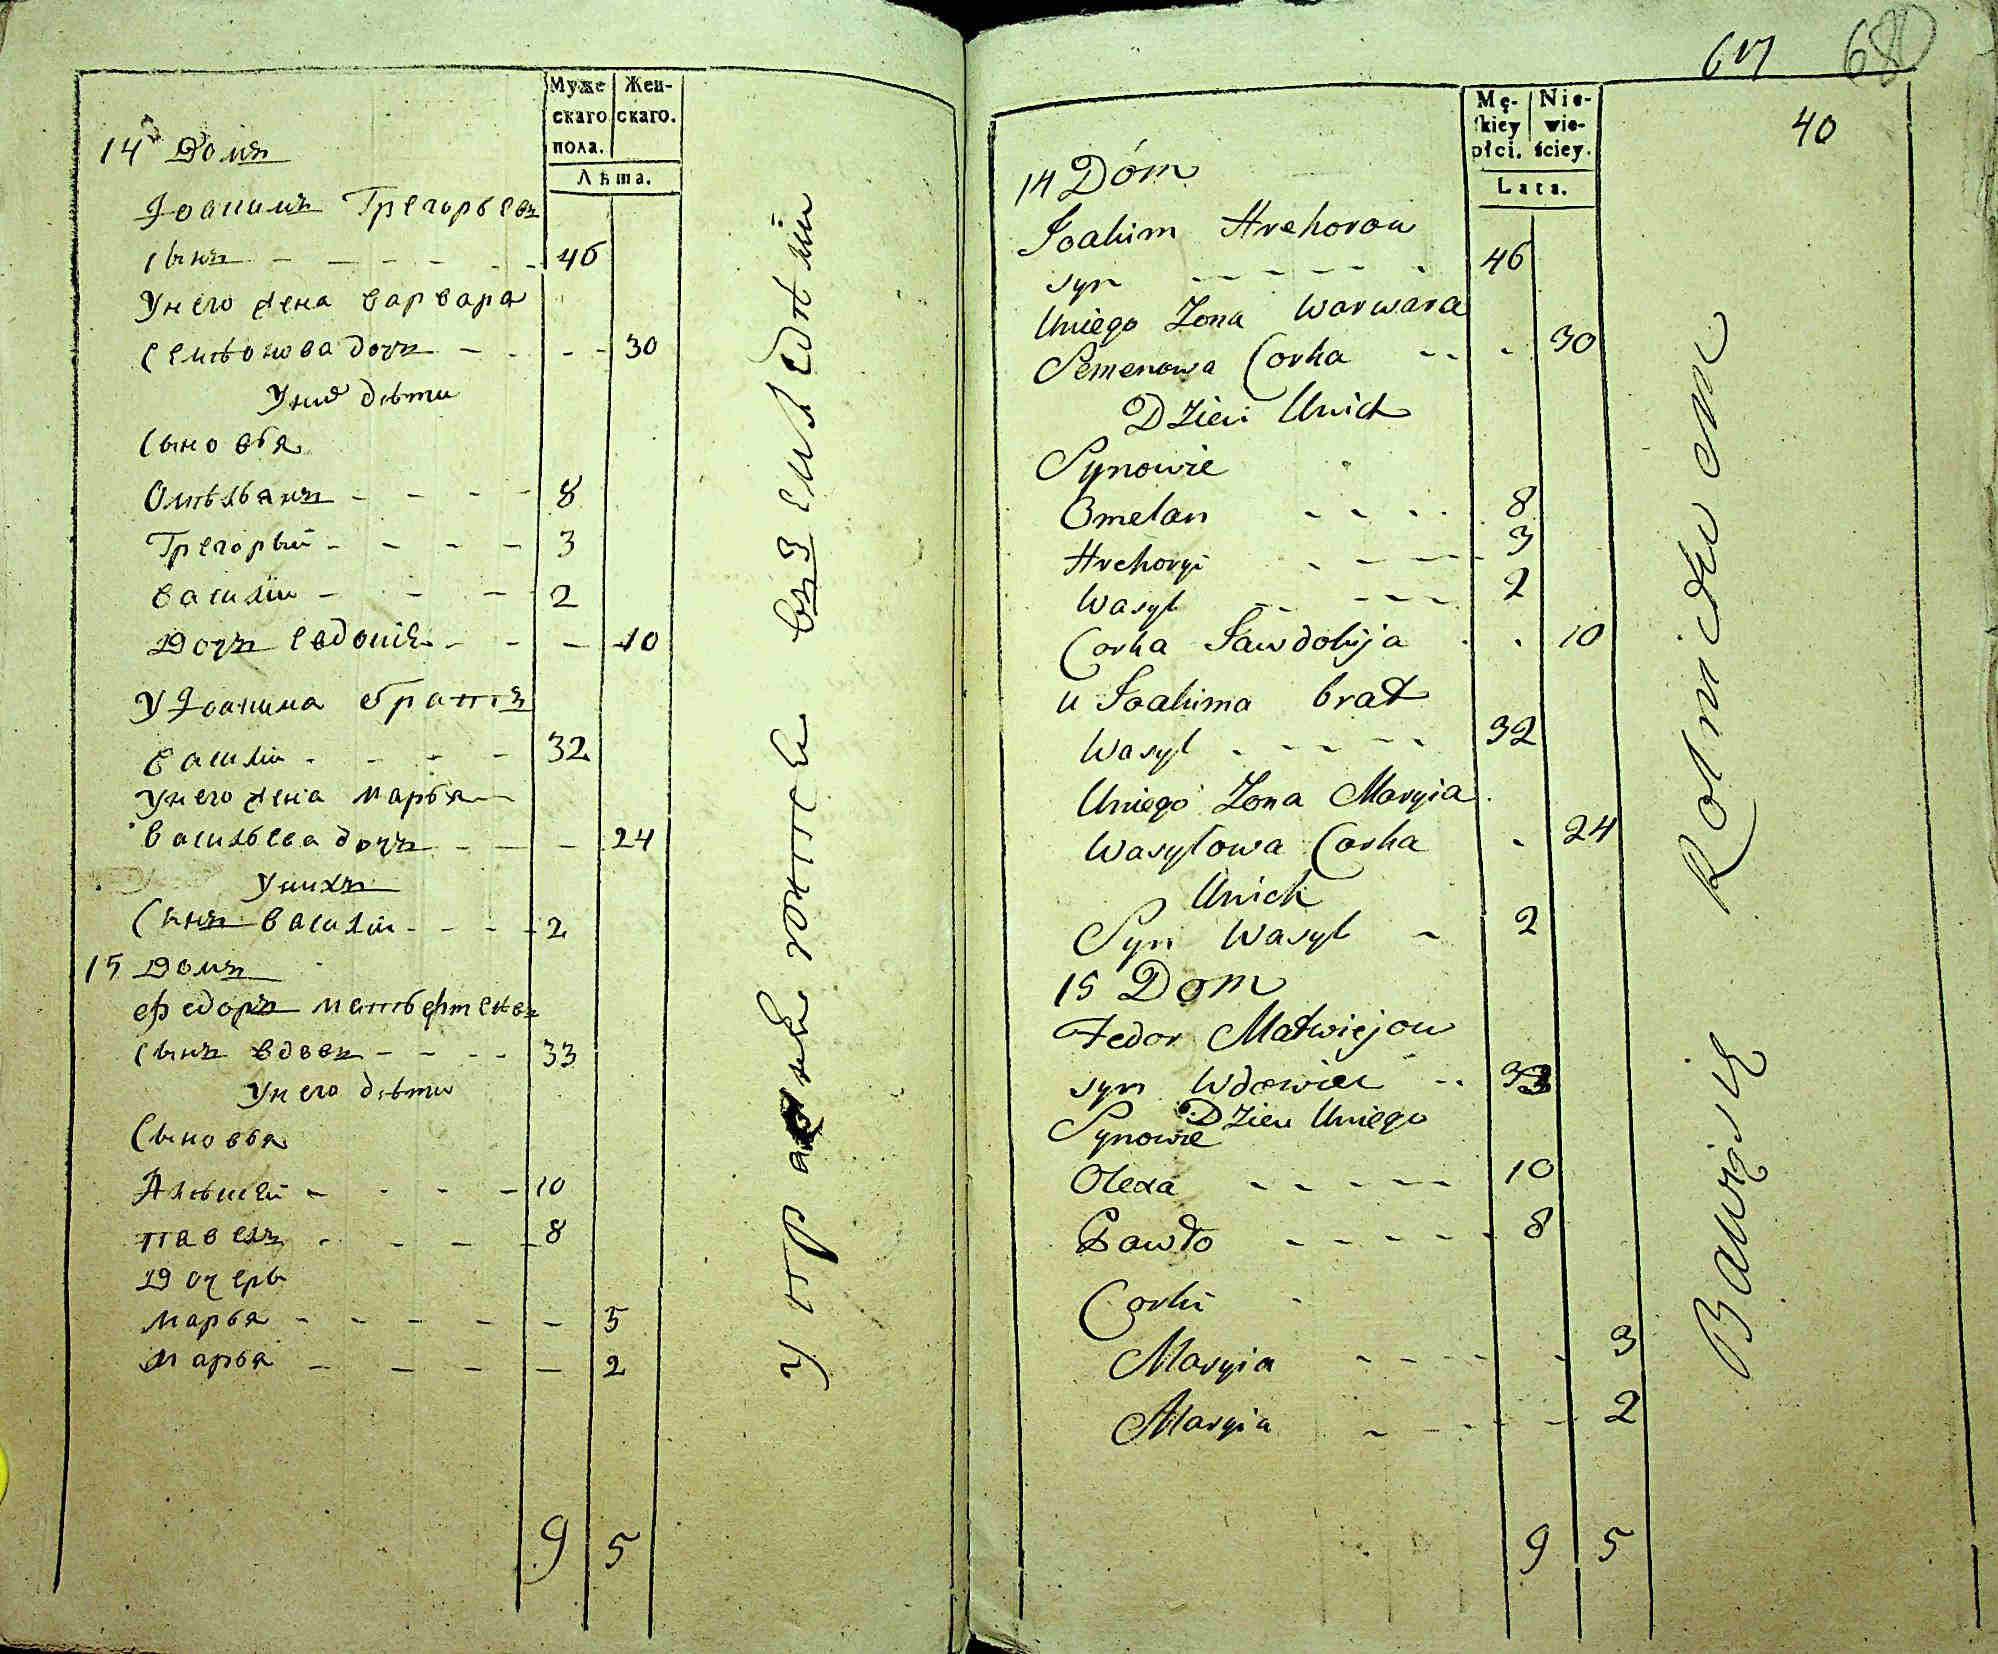 Муже
скаго
пола.
Жен-
скаго.
Лѣта.
14 Домъ
Іоакимъ Грегорьевъ
сынъ - - - - - - 46
Унего жена варвара
семѣонова дочъ - - - - 30
Унихъ дѣти
сыновья
Омѣльянъ - - - - 8
Грегорьій - - - - 3
василій - - - - 2
Дочъ евдокіѣ - - - 10
У Іоакима братъ
василій - - - - 32
Унего жена марья
васильева дочъ - - - 24
Унихъ
сынъ василій - - - - 2
15 Домъ
федоръ
сынъ вдовец - - - - 33
Унего дѣти
сыновья
- - - - 10
павелъ - - - - 8
Дочерь
марья - - - - - 3
марья - - - - - 2
9 5
680
40
Mę-
skiey
płci.
Nie-
wie-
ściey.
Lata.
14 Dóm
Joakim Hrehorow
syn - - - - - - 46
Uniego Zona Warwara
Semenowa Corka - - - 30
Dzieci Unich
Synowie
Omelan - - - - 8
Hrehoryi - - - - 3
Wasyl - - - - 2
Corka Jawdokija - - 10
u Joakima brat
Wasyl - - - - - 32
Uniego Zona Maryia
Wasylowa Corka - 24
Unich
Syn Wasyl - 2
15 Dom
Fedor Matwiejow
syn Wdowiec - - 33
Dzieci Uniego
Synowie
Olexa - - - - - 10
Pawło - - - - - 8
Corki -
Maryia - - - - - 3
Maryia - - - - - 2
9 5
Bawiąsię Rolnictwem